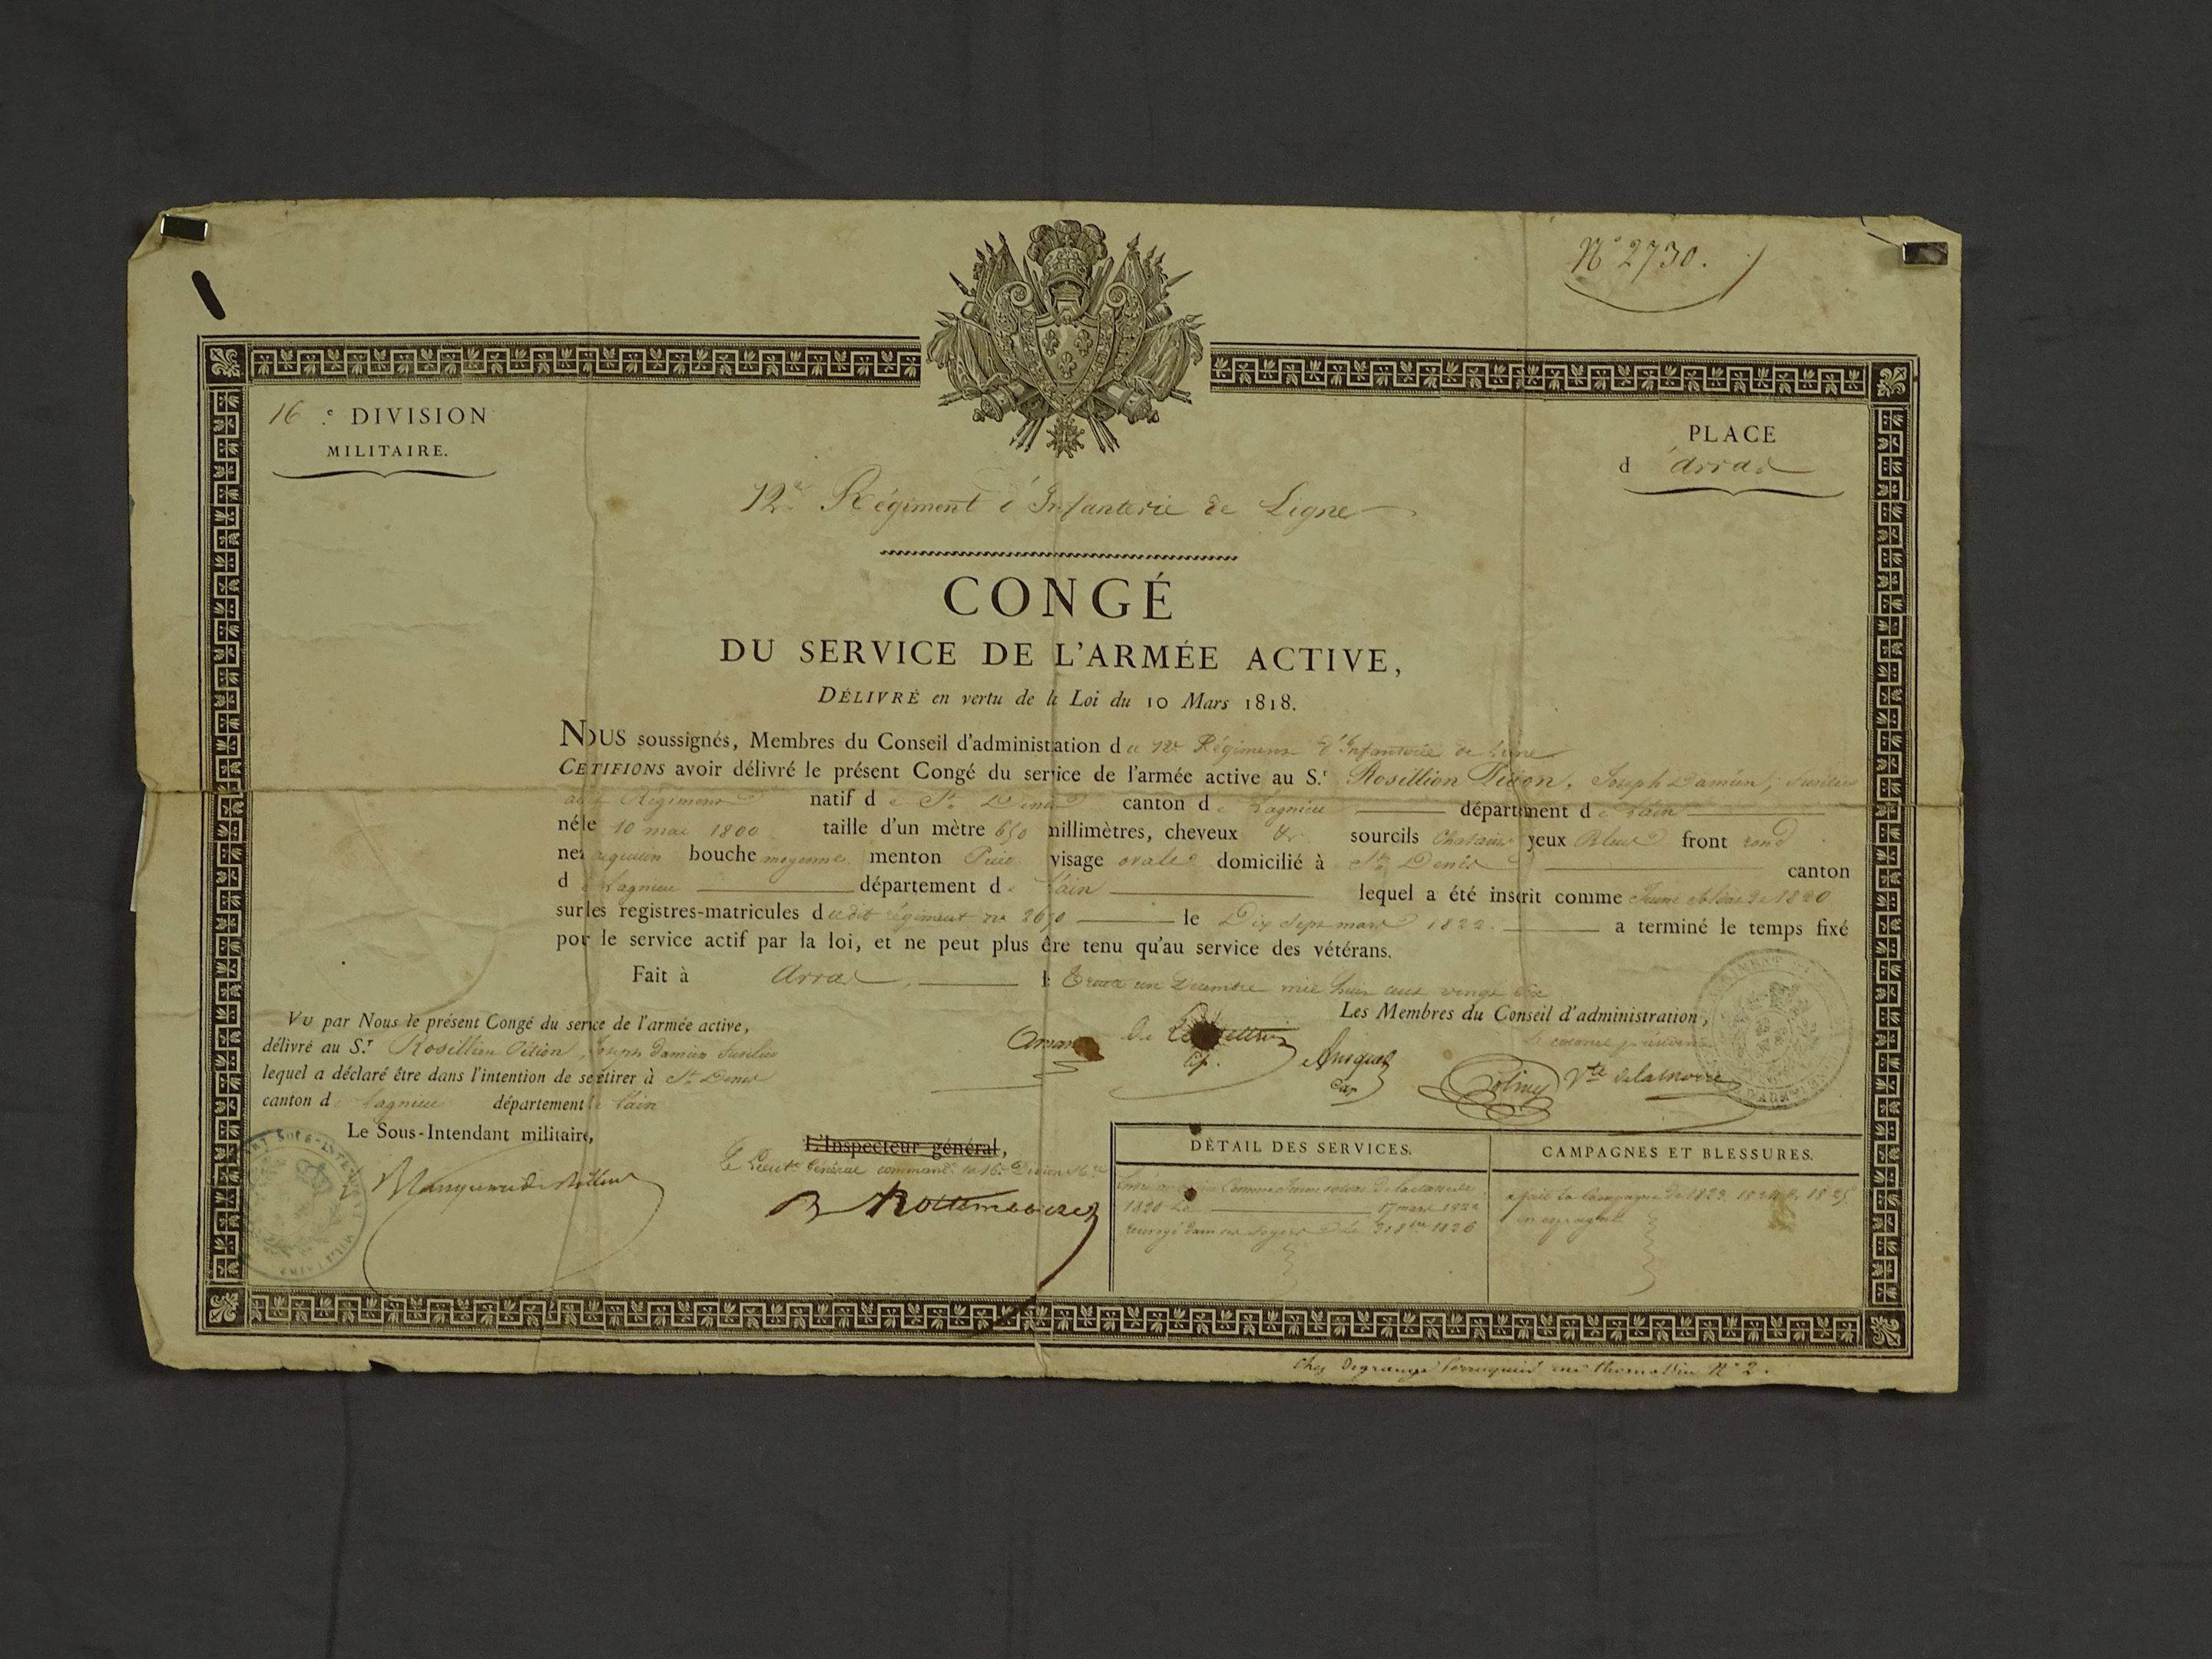 N° 2730.
16 e DIVISION
MILITAIRE.
PLACE
d' Arras
12e Régiment d'Infanterie de Ligne
CONGÉ
DU SERVICE DE L'ARMÉE ACTIVE,
DÉLIVRÉ en vertu de la Loi du 10 Mars 1818.
NOUS soussignés, Membres du Conseil d'administration du 12e Régiment d'Infanterie de Ligne
CETIFIONS avoir délivré le présent Congé du service de l'armée active au S.r Rosillion Joseph Damien, fusilier
Régiment natif de St. Denis canton de Lagnieu département de l'ain
né le 10 mai 1800 taille d'un mètre 650 millimètres, cheveux & sourcils Chatains yeux Bleus front rond
nez aquilin bouche moyenne menton visage ovale domicilié à St. Denis canton
de Lagnieu département de l'ain lequel a été inscrit comme Jeune Soldat de 1820
sur les registres-matricules dudit régiment no le Dix sept mars 1822. a terminé le temps fixé
pour le service actif par la loi, et ne peut plus être tenu qu'au service des vétérans.
Fait à Arras, le Trente un Décembre mil huit cent vingt six
Les Membres du Conseil d'administration,
le colonel président
Vu par Nous le présent Congé du service de l'armée active,
délivré au S.r Rosillion Joseph Damien fusilier
lequel a déclaré être dans l'intention de se retirer à St. Denis
canton de Lagnieu département de l'ain
Le Sous-Intendant militaire,
L'Inspecteur général,
Le Lieut. Général command. la 16e Division Mre
DÉTAIL DES SERVICES.
comme Jeune soldat de la classe de
1820 Le 17 mars 1822
renvoyé dans ses foyers Le 31 Xbre 1826
CAMPAGNES ET BLESSURES.
a fait la Campagne de 1823. 1824 & 1825.
en espagne